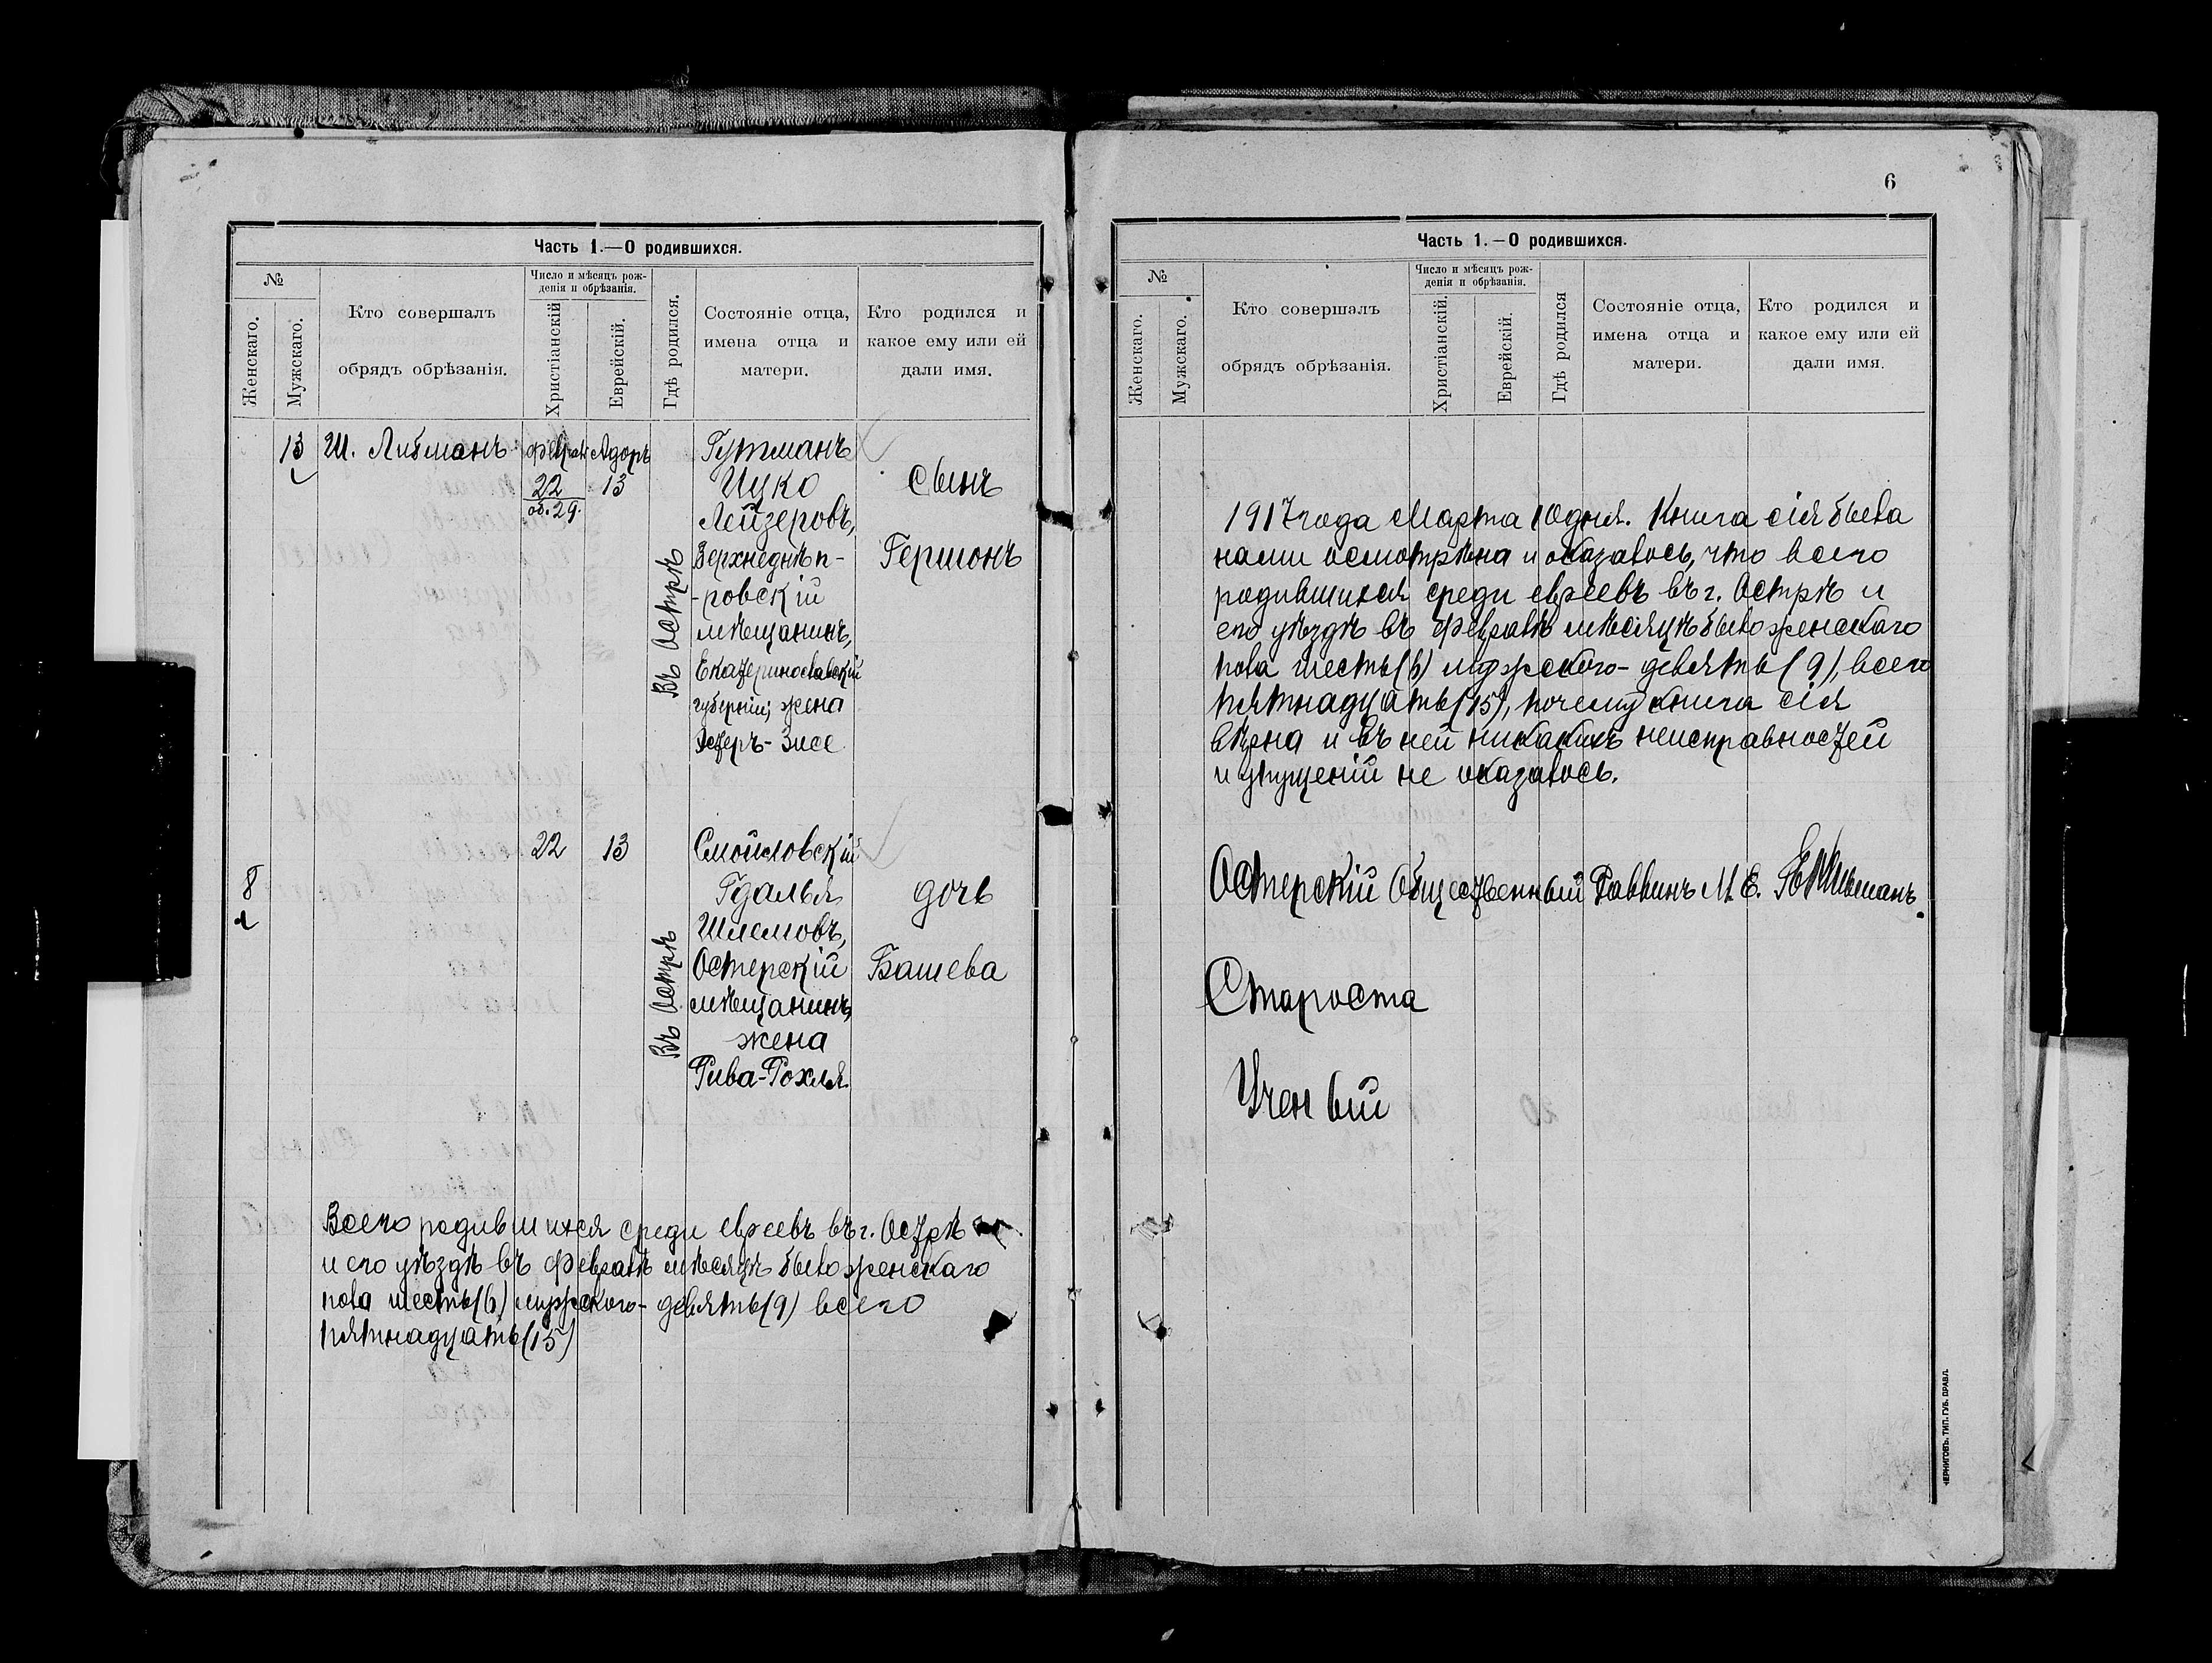 Часть 1.—О родившихся.
№
Женскаго.
Мужскаго.
Кто совершалъ
обрядъ обрѣзанія.
Число и мѣсяцъ рож-
денія и обрѣзанія.
Христіанскій
Еврейскій.
Гдѣ родился.
Состояніе отца,
имена отца и
матери.
Кто родился и
какое ему или ей
дали имя.
13 Ш. Либманъ Феврал Адоръ
22 13
об. 29.
Въ Острѣ
Гутманъ
Ицко
Лейзеровъ,
Верхнеднѣп-
-ровскій
мѣщанинъ,
Екатеринославскій
губерніи; жена
Эстеръ-Зисе
сынъ
Гершонъ
8
22 13
Въ Острѣ
Смоиловскій
Гдалья
Шлемовъ,
Остерскій
мѣщанинъ,
жена
Рива-Рохля.
дочь
Башева
Всего родившихся среди евреевъ въ г. Острѣ
и его уѣздѣ въ Февралѣ мѣсяцѣ было женскаго
пола шесть (6) мужского - девять (9) всего
пятнадцать (15)
6
Часть 1.—О родившихся.
№
Женскаго.
Мужскаго.
Кто совершалъ
обрядъ обрѣзанія.
Число и мѣсяцъ рож-
денія и обрѣзанія.
Христіанскій.
Еврейскій.
Гдѣ родился
Состояніе отца,
имена отца и
матери.
Кто родился и
какое ему или ей
дали имя.
1917 года Марта 10 дня. Книга сія была
нами осмотрѣна и оказалось, что всего
родившихся среди евреевъ въ г. Острѣ и
его уѣздѣ въ Февралѣ мѣсяцѣ было женскаго
пола шесть (6) мужского - девять (9), всего
пятнадцать (15), почему книга сія
вѣрна и въ ней никакихъ неисправностей
и упущеній не оказалось.
Остерскій Общественный Раввинъ М. Е.
Староста
Ученый
ЧЕРНИГОВЪ. ТИП. ГУБ. ПРАВЛ.